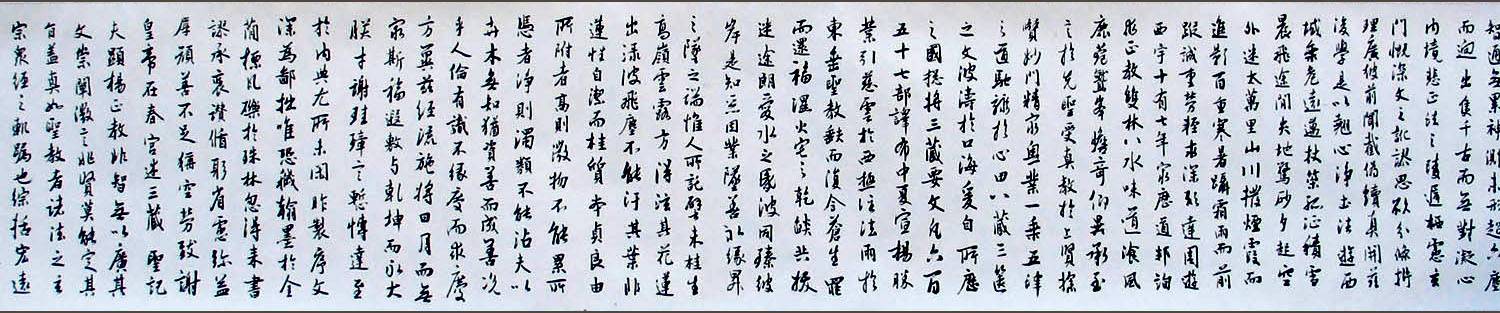 智通無累神測未形超六塵
而迥出隻千古而無對凝心
內境悲正法之陵遲栖慮玄
門慨深文之訛謬思欲分條析
理廣彼前聞截偽續真開茲
後學是以翹心淨土法遊西
域乘危遠邁杖策孤征積雪
晨飛途閒失地驚砂夕起空
外迷天萬里山川撥煙霞而
進影百重寒暑躡霜雨而前
蹤誠重勞輕求深願達周遊
西宇十有七年窮歷道邦詢
求正教雙林八水味道湌風
鹿苑鷲峯瞻奇仰異承至
言於先聖受真教於上賢探
賾妙門精窮奧業一乘五律
之道馳驟於心田八藏三篋
之文波濤於口海爰自所歷
之國總將三藏要文凡六百
五十七部譯布中夏宣揚勝
業引慈雲於西極注法雨於
東垂聖教缺而復全蒼生罪
而還福濕火宅之乾焰共拔
迷途朗愛水之昏波同臻彼
岸是知惡因業墜善以緣昇
之墜之端惟人所託譬夫桂生
高嶺雲露方得泫其花蓮
出淥波飛塵不能汙其葉非
蓮性自潔而桂質本貞良由
所附者高則微物不能累所
憑者淨則濁類不能沾夫以
卉木無知猶資善而成善況
乎人倫有識不緣慶而求慶
方冀茲經流施將日月而無
窮斯福遐敷與乾坤而永大
朕才謝珪璋言慙博達至
於內典尤所未閑昨製序文
深為鄙拙唯恐穢翰墨於金
簡標瓦礫於珠林忽得來書
謬承褒讚循躬省慮弥益
厚顏善不足稱空勞致謝
皇帝在春宮述三藏聖記
夫顯揚正教非智無以廣其
文崇闡微言非賢莫能定其
旨蓋真如聖教者諸法之玄
宗衆經之軌躅也綜括宏遠